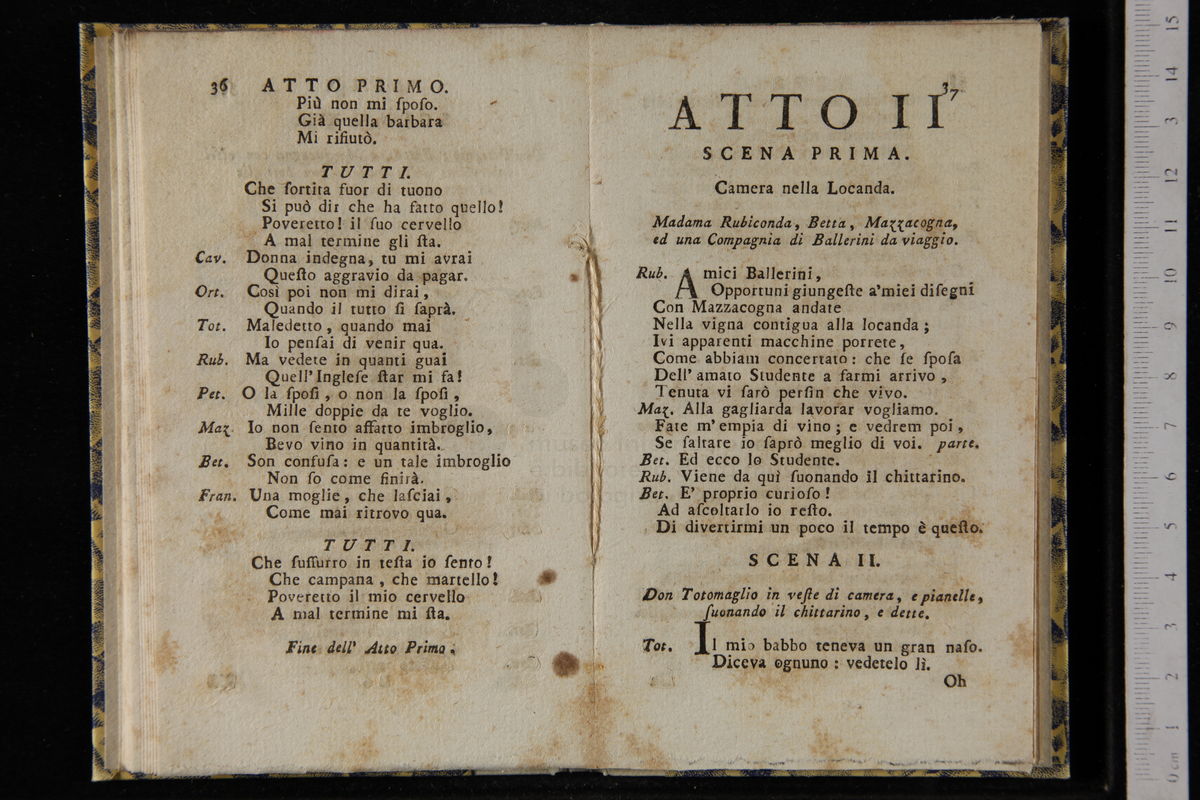 36 ATTO PRIMO.
Più non mi ſpoſo.
Già quella barbara
Mi rifiutò.
TUTTI.
Che ſortita fuor di tuono
Si può dir che ha fatto quello!
Poveretto! il ſuo cervello
A mal termine gli ſta.
Cav. Donna indegna, tu mi avrai
Queſto aggravio da pagar.
Ort. Così poi non mi dirai,
Quando il tutto ſi ſaprà.
Tot. Maledetto, quando mai
Io penſai di venir qua.
Rub. Ma vedete in quanti guai
Quell' Ingleſe ſtar mi fa!
Pet. O la ſpoſi, o non la ſpoſi,
Mille doppie da te voglio.
Maz. Io non ſento affatto imbroglio,
Bevo vino in quantità.
Bet. Son confuſa: e un tale imbroglio
Non ſo come finirà.
Fran. Una moglie, che laſciai,
Come mai ritrovo qua.
TUTTI.
Che ſuſſurro in teſta io ſento!
Che campana, che martello!
Poveretto il mio cervello
A mal termine mi ſta.
Fine dell' Atto Primo.
37
ATTO II
SCENA PRIMA.
Camera nella Locanda.
Madama Rubiconda, Betta, Mazzacogna,
ed una Compagnia di Ballerini da viaggio.
Rub. Amici Ballerini,
Opportuni giungeſte a'miei diſegni
Con Mazzacogna andate
Nella vigna contigua alla locanda;
Ivi apparenti macchine porrete,
Come abbiam concertato: che ſe ſpoſa
Dell' amato Studente a farmi arrivo,
Tenuta vi ſarò perfin che vivo.
Maz. Alla gagliarda lavorar vogliamo.
Fate m' empia di vino; e vedrem poi,
Se ſaltare io ſaprò meglio di voi. parte.
Bet. Ed ecco lo Studente.
Rub. Viene da quì ſuonando il chittarino.
Bet. E' proprio curioſo!
Ad aſcoltarlo io reſto.
Di divertirmi un poco il tempo è queſto.
SCENA II.
Don Totomaglio in veſte di camera, e pianelle,
ſuonando il chittarino, e dette.
Tot. Il mio babbo teneva un gran naſo.
Diceva ognuno: vedetelo lì.
Oh
15
14
13
12
11
10
9
8
7
6
5
4
3
2
1
0 cm